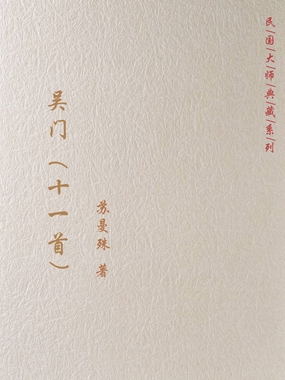 民国大师典藏系列
吴门（十一首）
苏曼殊 著